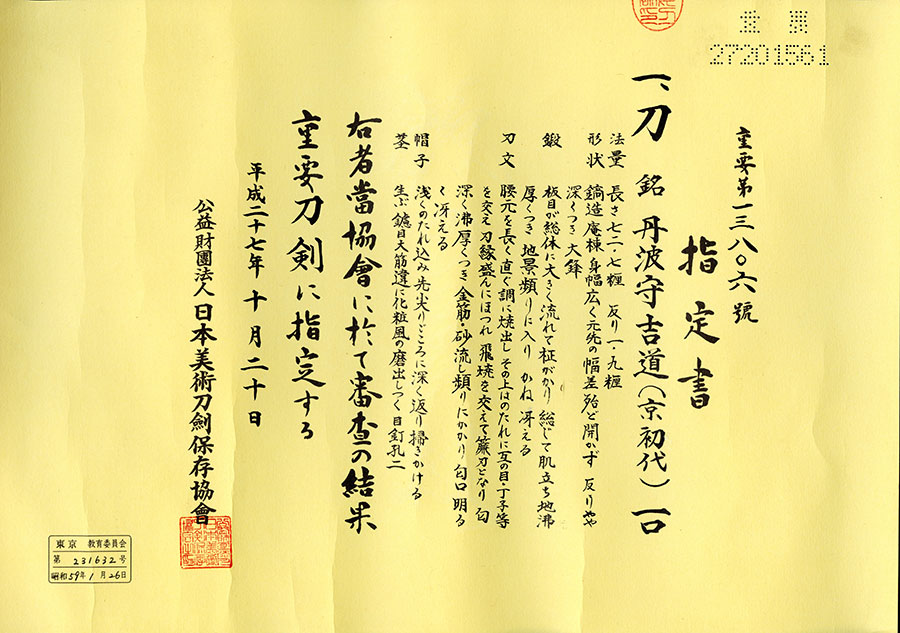 重要
27201561
重要第一三八〇六號
指定書
一、刀 銘 丹波守吉道(京初代) 一口
法量 長さ七二・七糎 反り一・九糎
形状 鎬造 庵棟 身幅広く 元先の幅差殆ど開かず 反りやや
深くつき 大鋒
鍛 板目が総体に大きく流れて柾がかり 総じて肌立ち 地沸
厚くつき 地景頻りに入り かね冴える
刃文 腰元を長く直ぐ調に焼出し その上はのたれに互の目・丁子等
を交え 刃縁盛んにほつれ 飛焼を交えて簾刃となり 匂
深く 沸厚くつき 金筋・砂流し頻りにかかり 匂口明る
く冴える
帽子 浅くのたれ込み 先尖りごころに深く返り 掃きかける
茎 生ぶ 鑢目大筋違に化粧風の磨出しつく 目釘孔二
右者當協會に於て審査の結果
重要刀剣に指定する
平成二十七年十月二十日
公益財團法人 日本美術刀劍保存協會
東京 教育委員会
第 231632 号
昭和59年1月26日